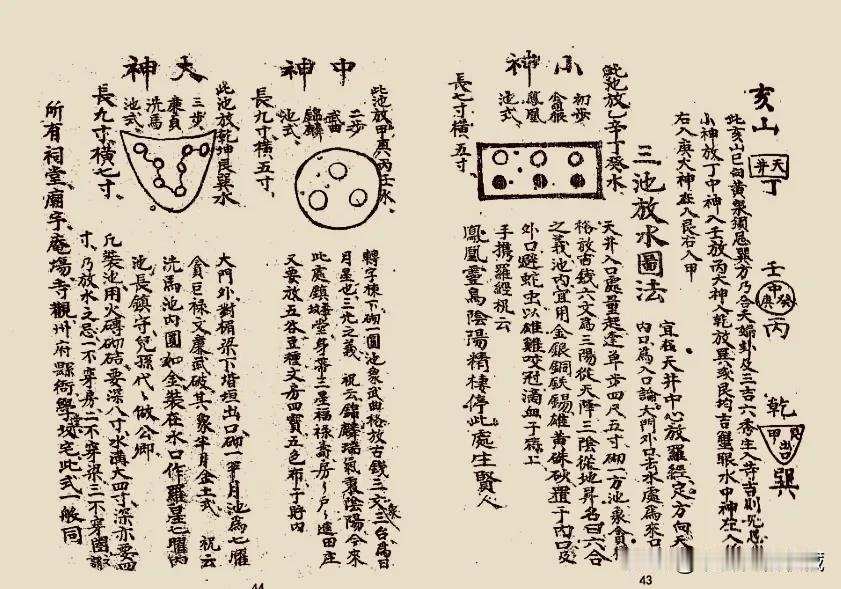 亥山
天井
丁
壬
丙
乾
巽
此亥山巳向黃泉須忌巽方乃合夫婦卦及三吉六秀生入
小神放丁中神入壬放丙大神入乾放巽或艮均吉蟹眼水中神左入
右入庚大神左入艮右入甲
三池放水圖法
宜在天井中心放羅經定方向天
內口為入口論大門外口去水處為來口
小神
此池放乙辛丁癸水
初步
貪狼
鳳凰
池式
長七寸橫五寸、
天井入口處量起逢單步四尺五寸砌一方池象貪狼
格放古錢六文為三陽從天降三陰從地昇名曰六合
之義池內宜用金銀銅鉄錫雄黃硃砂置于內口及
外口避蛇虫以雄雞咬冠滴血于
手携羅經祝云
鳳凰靈鳥陰陽精棲停此處生賢人
43
中神
此池放甲庚丙壬水、
二步
武曲
錦麟
池式、
長九寸橫五寸、
轉字棟下砌一圓池象武曲格放古錢三文三台為日
月星也三光之義 祝云錦麟瑞氣裹陰陽今來
此處鎮堂身帶土星福祿壽房戶進田庄
又要放五谷豆種文房四寶五色布于內
大神
此池放乾坤艮巽水
三步、
廉貞
洗馬
池式、
長九寸、橫七寸、
大門外對楣梁下墻垣出口砌一半月池為七曜
貪巨祿文廉武破其象半月金土式 祝云
洗馬池內圓如金裝在水口作羅星七曜
池長鎮守兒孫代做公卿、
凡裝池用火磚砌結、要深八寸水溝大四寸、深亦要四
寸、乃放水之忌一不穿房二不穿梁三不穿圈
所有祠堂、廟宇、庵場寺觀州府縣衙學攻宅此式一般同
44